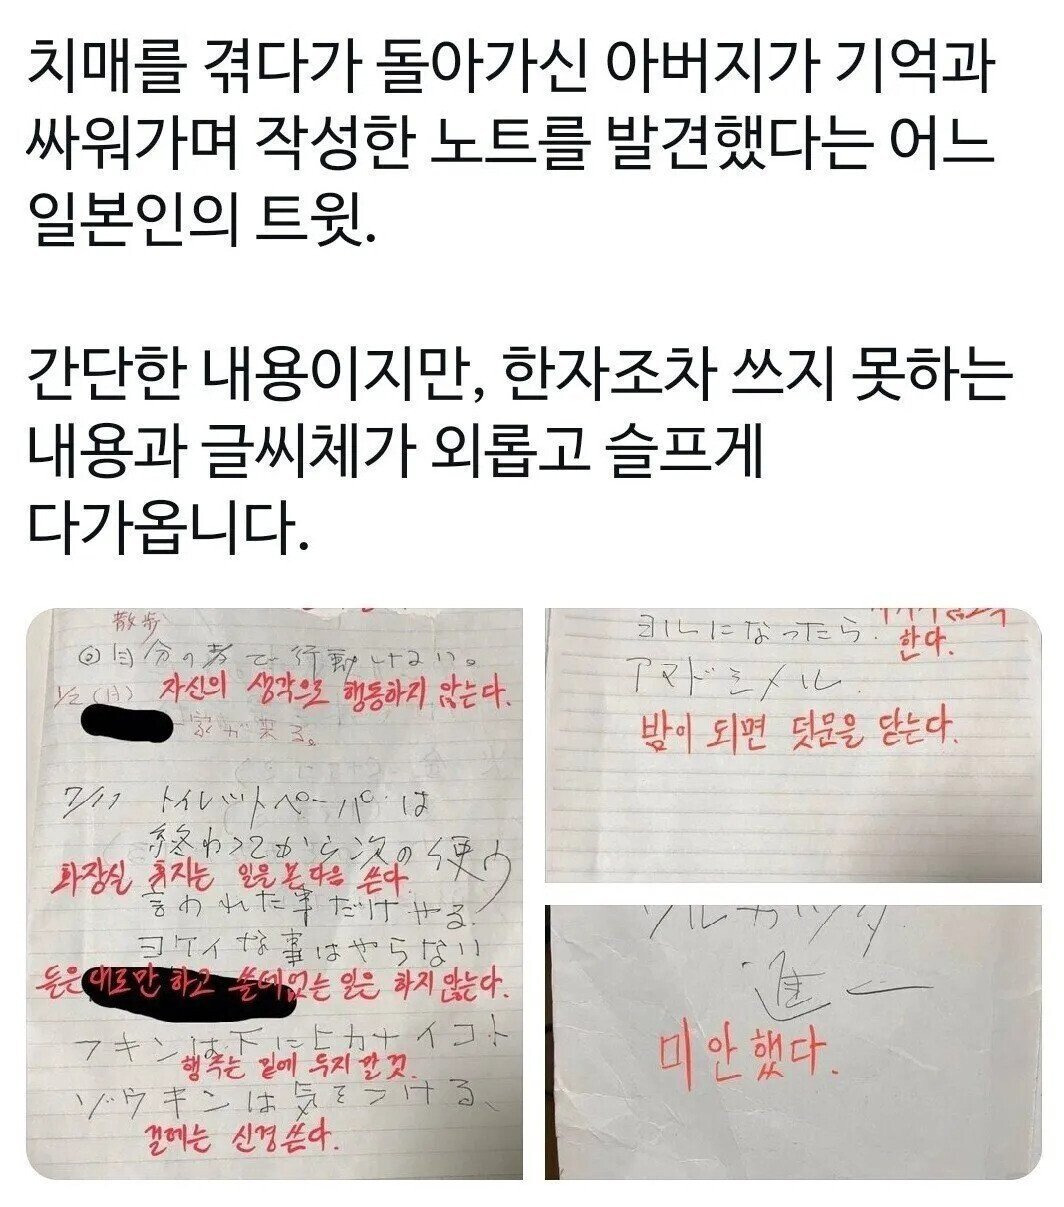 치매를 겪다가 돌아가신 아버지가 기억과
싸워가며 작성한 노트를 발견했다는 어느
일본인의 트윗.
간단한 내용이지만, 한자조차 쓰지 못하는
내용과 글씨체가 외롭고 슬프게
다가옵니다.
散歩
◎自分の考で行動しない。
자신의 생각으로 행동하지 않는다.
1/2(月)
家が来る。
7/11 トイレットペーパーは
終わってから次の使う
화장실 휴지는 일을 본 다음 쓴다.
言われた事だけやる
ヨケイな事はやらない
듣은 대로만 하고 쓸데없는 일은 하지 않는다.
フキンは下にヒカナイコト
행주는 밑에 두지 말 것.
ゾウキンは気をつける、
걸레는 신경쓴다.
ヨルになったら
한다.
アマドシメル
밤이 되면 덧문을 닫는다.
進一
미안했다.